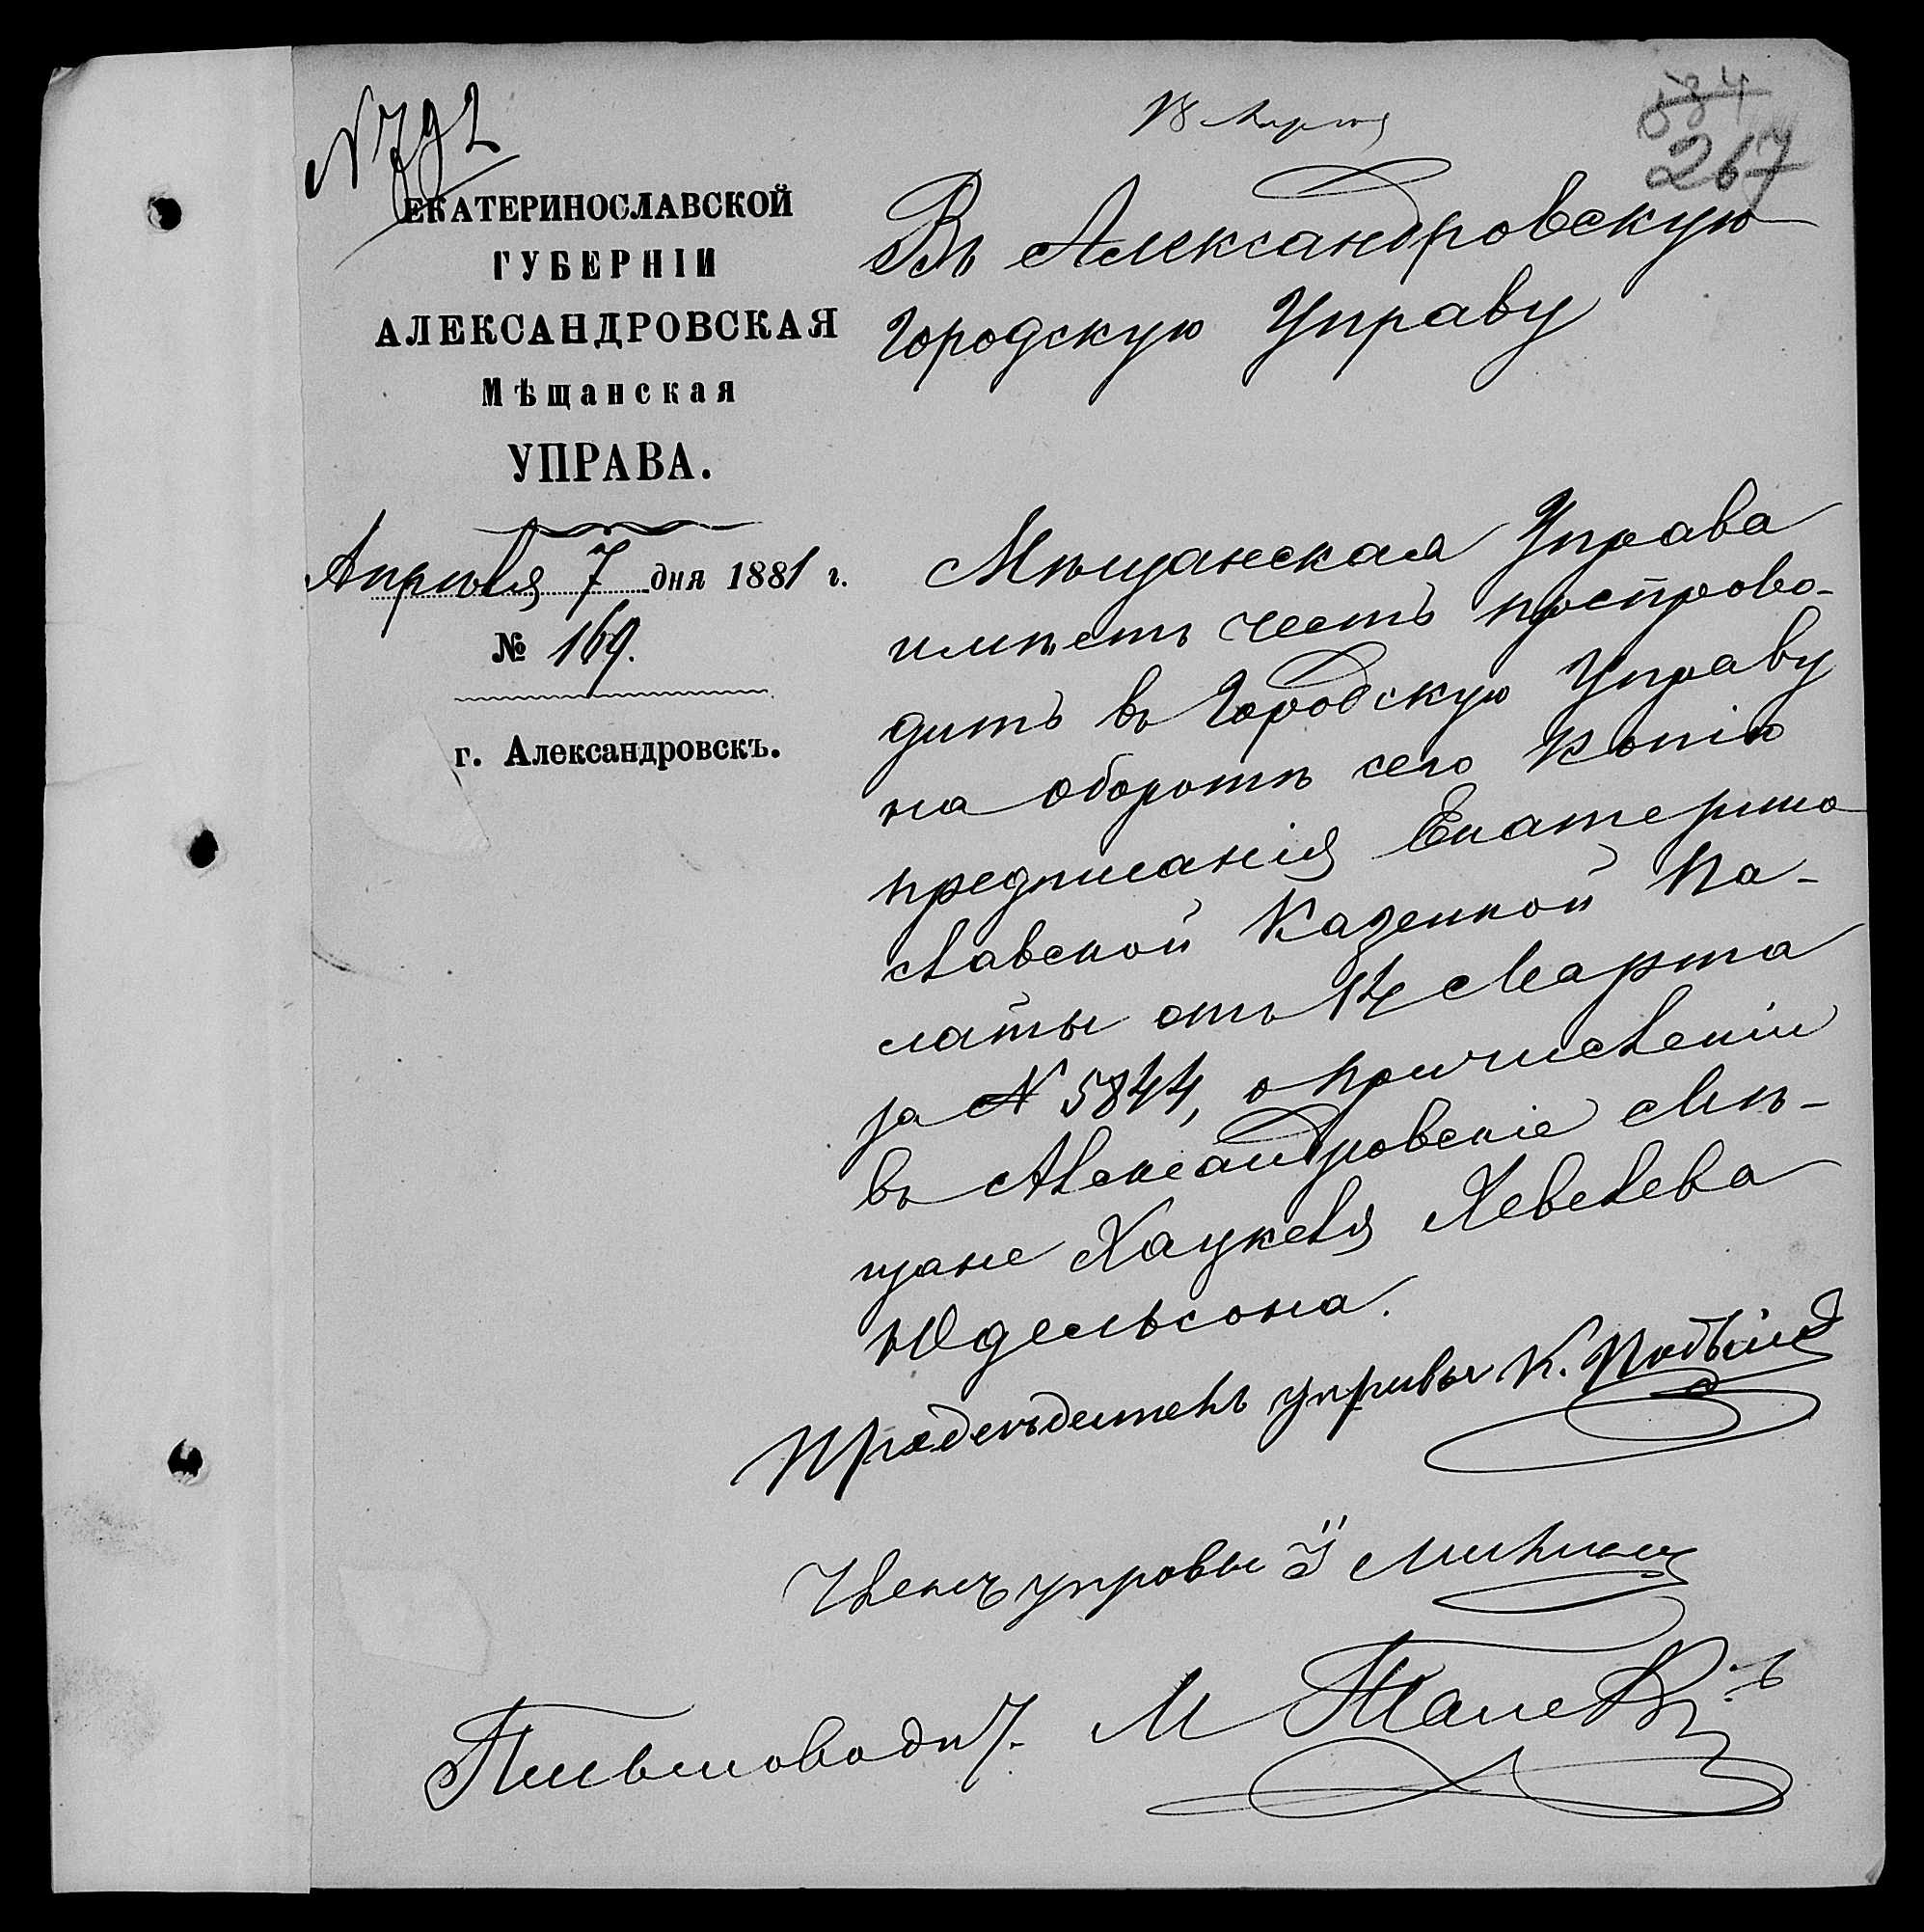 № 792
584
267
ЕКАТЕРИНОСЛАВСКОЙ
ГУБЕРНІИ
АЛЕКСАНДРОВСКАЯ
Мѣщанская
УПРАВА.
Апрѣля 7 дня 1881 г.
№ 169.
г. Александровскъ.
Въ Александровскую
Городскую Управу
Мѣщанская Управа
имѣетъ честь препрово-
дить въ Городскую Управу
на оборотѣ сего копію
предписанія Екатерино
славской Казенной Па-
латы отъ 14 Марта
за № 5844, о причисленіи
въ Александровскіе Мѣ-
щане Хацкеля Левелева
Юдельсона.
Предсѣдатель управы К.
Членъ управы
Письмовод. М